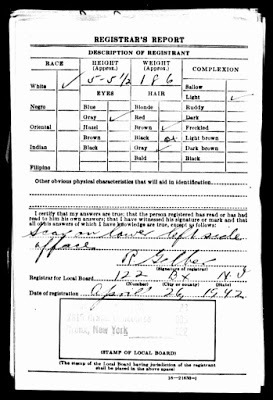 REGISTRAR'S REPORT
DESCRIPTION OF REGISTRANT
RACE HEIGHT (Approx.) WEIGHT (Approx.) COMPLEXION
White ✓ 5-5 1/2 186 Sallow
EYES HAIR Light ✓
Negro Blue Blonde Ruddy
Gray ✓ Red Dark
Oriental Hazel Brown ✓ Freckled
Brown Black Light brown
Indian Black Gray Dark brown
Bald Black
Filipino
Other obvious physical characteristics that will aid in identification
I certify that my answers are true; that the person registered has read or has had
read to him his own answers; that I have witnessed his signature or mark and that
all of his answers of which I have knowledge are true, except as follows:
Scar on lower left side
of face
R
(Signature of registrar)
Registrar for Local Board 122 Bx N.Y
(Number) (City or county) (State)
Date of registration April 26, 1942
New York
(STAMP OF LOCAL BOARD)
(The stamp of the Local Board having jurisdiction of the registrant
shall be placed in the above space)
16—21630-1